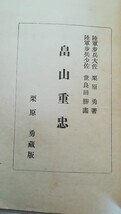 陸軍歩兵大佐 栗原勇著
陸軍歩兵少佐 世良田勝壽
畠山重忠
栗原勇藏版